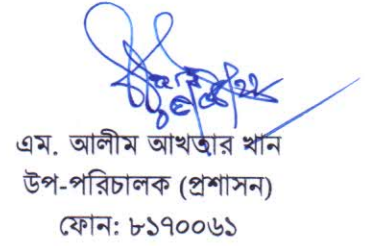 এম. আলীম আখতার খান
উপ-পরিচালক (প্রশাসন)
ফোন: ৮১৭০০৬১